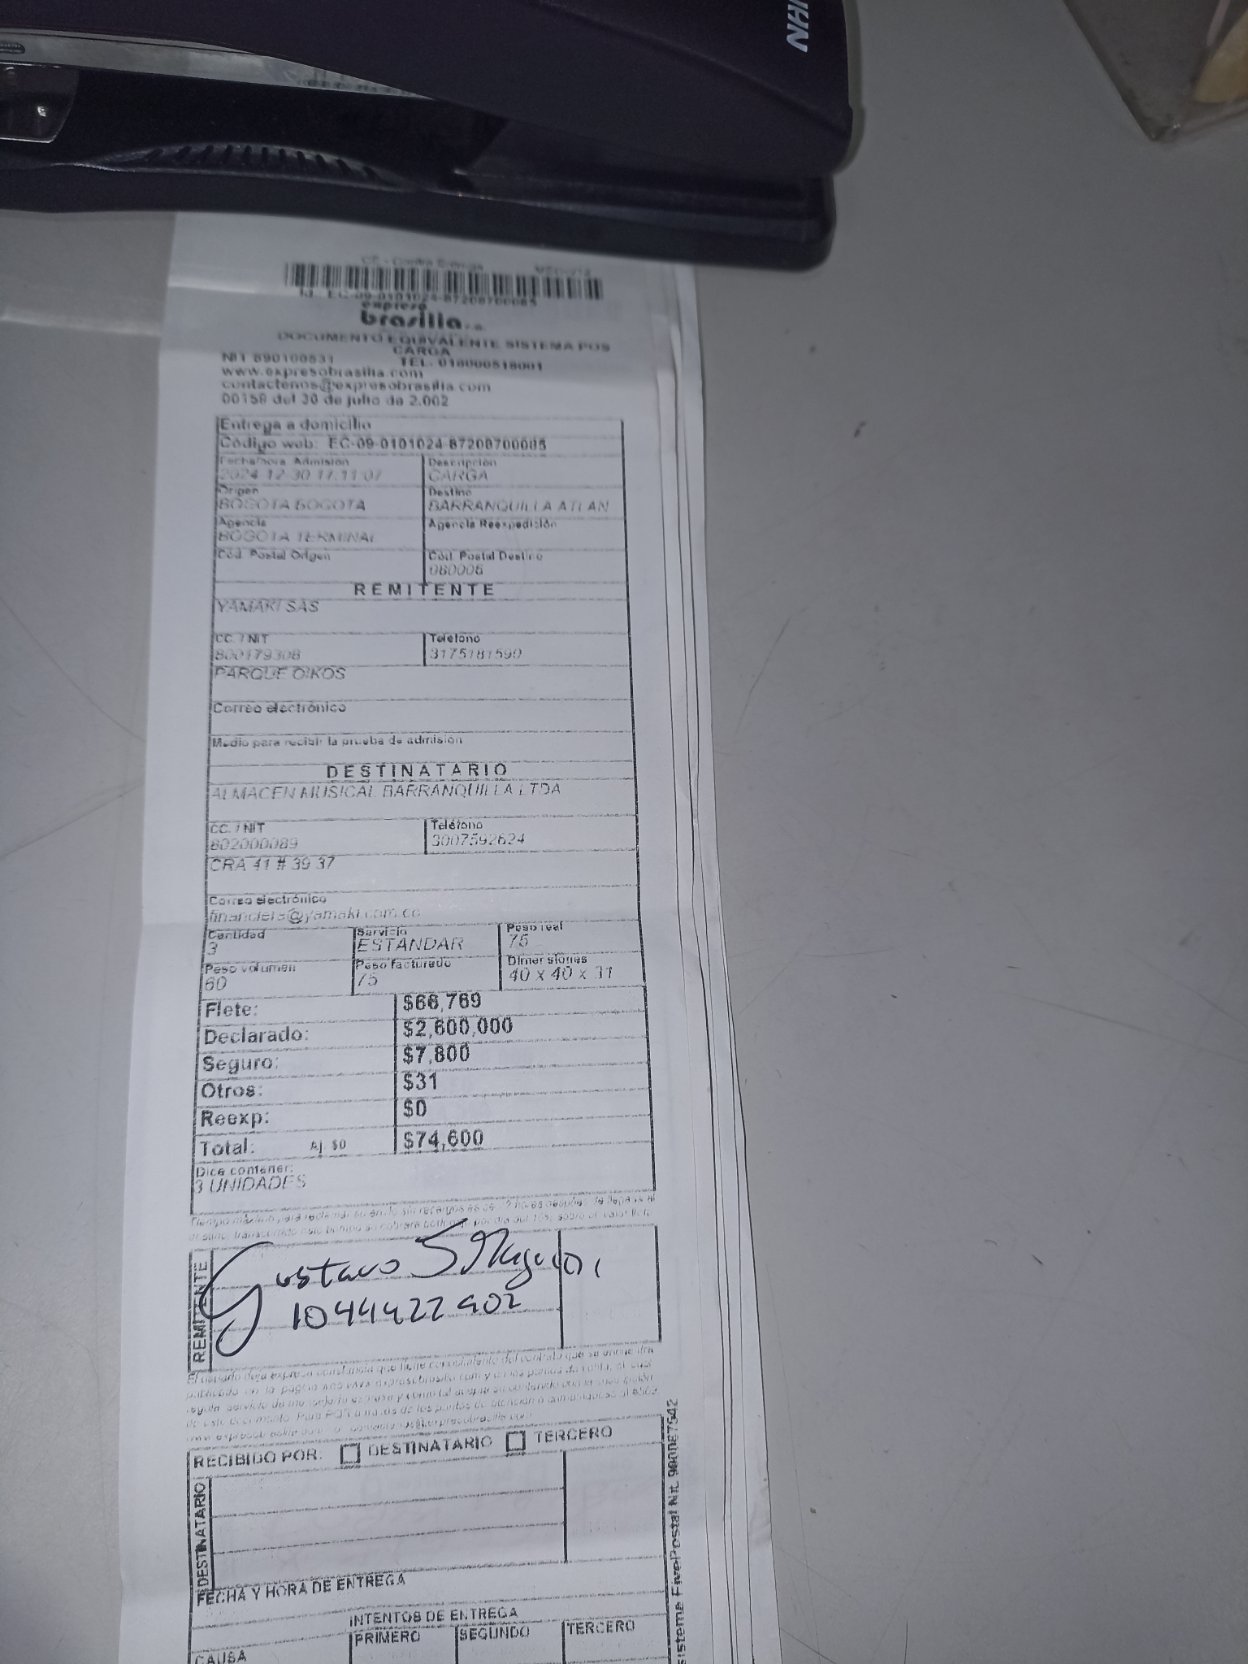 NHI
Id. EC-09-0101024-87208700085
expreso
brasilia s.a.
DOCUMENTO EQUIVALENTE SISTEMA POS
CARGA
NIT 890100531 TEL. 018000518001
www.expresobrasilia.com
contactenos@expresobrasilia.com
00158 del 30 de julio de 2.002
Entrega a domicilio
Código web: EC-09-0101024-87208700085
Fecha/hora Admisión Descripción
2024-12-30 17:11:07 CARGA
Origen Destino
BOGOTA BOGOTA BARRANQUILLA ATLAN
Agencia Agencia Reexpedición
BOGOTA TERMINAL
Cód. Postal Origen Cód. Postal Destino
080006
REMITENTE
YAMAKI SAS
CC. / NIT Teléfono
800179308 3175181590
PARQUE OIKOS
Correo electrónico
Medio para recibir la prueba de admisión
DESTINATARIO
ALMACEN MUSICAL BARRANQUILLA LTDA
CC. / NIT Teléfono
802000089 3007592624
CRA 41 # 39 37
Correo electrónico
@yamaki.com.co
Cantidad Servicio Peso real
3 ESTANDAR 75
Peso volumen Peso facturado Dimensiones
60 75 40 x 40 x 31
Flete: $66,769
Declarado: $2,600,000
Seguro: $7,800
Otros: $31
Reexp: $0
Total: Aj $0 $74,600
Dice contener:
3 UNIDADES
REMITENTE
Gustavo
1044422902
RECIBIDO POR: DESTINATARIO TERCERO
DESTINATARIO
FECHA Y HORA DE ENTREGA
INTENTOS DE ENTREGA
CAUSA PRIMERO SEGUNDO TERCERO
Sisteme FivePostal Nit. 900087542